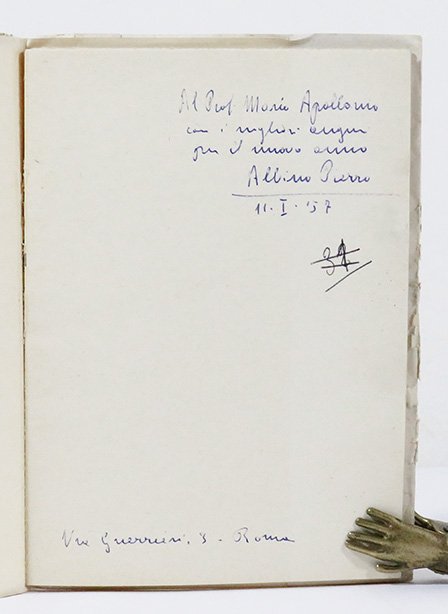 Al Prof. Mario Apollonio
con i migliori auguri
per il nuovo anno
Albino Pierro
11. I. '57
Via Guerrieri, 3 - Roma